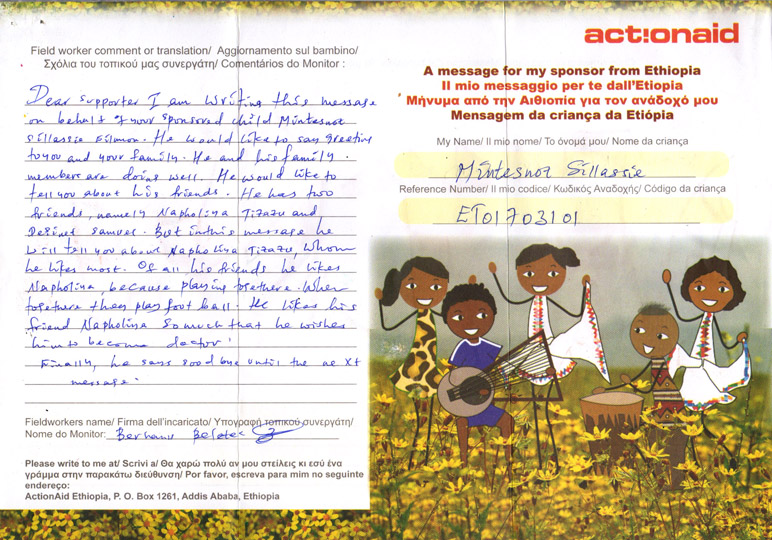 Field worker comment or translation/ Aggiornamento sul bambino/
Σχόλια του τοπικού μας συνεργάτη/ Comentários do Monitor :
Dear supporter I am writing this message
on behalf of your sponsored child Mintesnot
Sillassie. He would like to say greeting
to you and your family. He and his family.
members are doing well. He would like to
tell you about his friends. He has two
friends, namely Napholina Tizazu and
samuel. But in this message he
will tell you about Napholina Tizazu, whom
he likes most. Of all his friends he likes
Napholina because playing together. When
together they play foot ball. He likes his
friend Napholina so much that he wishes
him to become doctor.
Finally, he says good bye until the ne xt
message.
Fieldworkers name/ Firma dell'incaricato/ Υπογραφή τοπικού συνεργάτη/
Nome do Monitor:
Please write to me at/ Scrivi a/ Θα χαρώ πολύ αν μου στείλεις κι εσύ ένα
γράμμα στην παρακάτω διεύθυνση/ Por favor, escreva para mim no seguinte
endereço:
ActionAid Ethiopia, P. O. Box 1261, Addis Ababa, Ethiopia
act!onaid
A message for my sponsor from Ethiopia
Il mio messaggio per te dall'Etiopia
Μήνυμα από την Αιθιοπία για τον ανάδοχό μου
Mensagem da criança da Etiópia
My Name/ Il mio nome/ Το όνομά μου/ Nome da criança
Mintesnot Sillassie
Reference Number/ Il mio codice/ Κωδικός Αναδοχής/ Código da criança
ET01703101